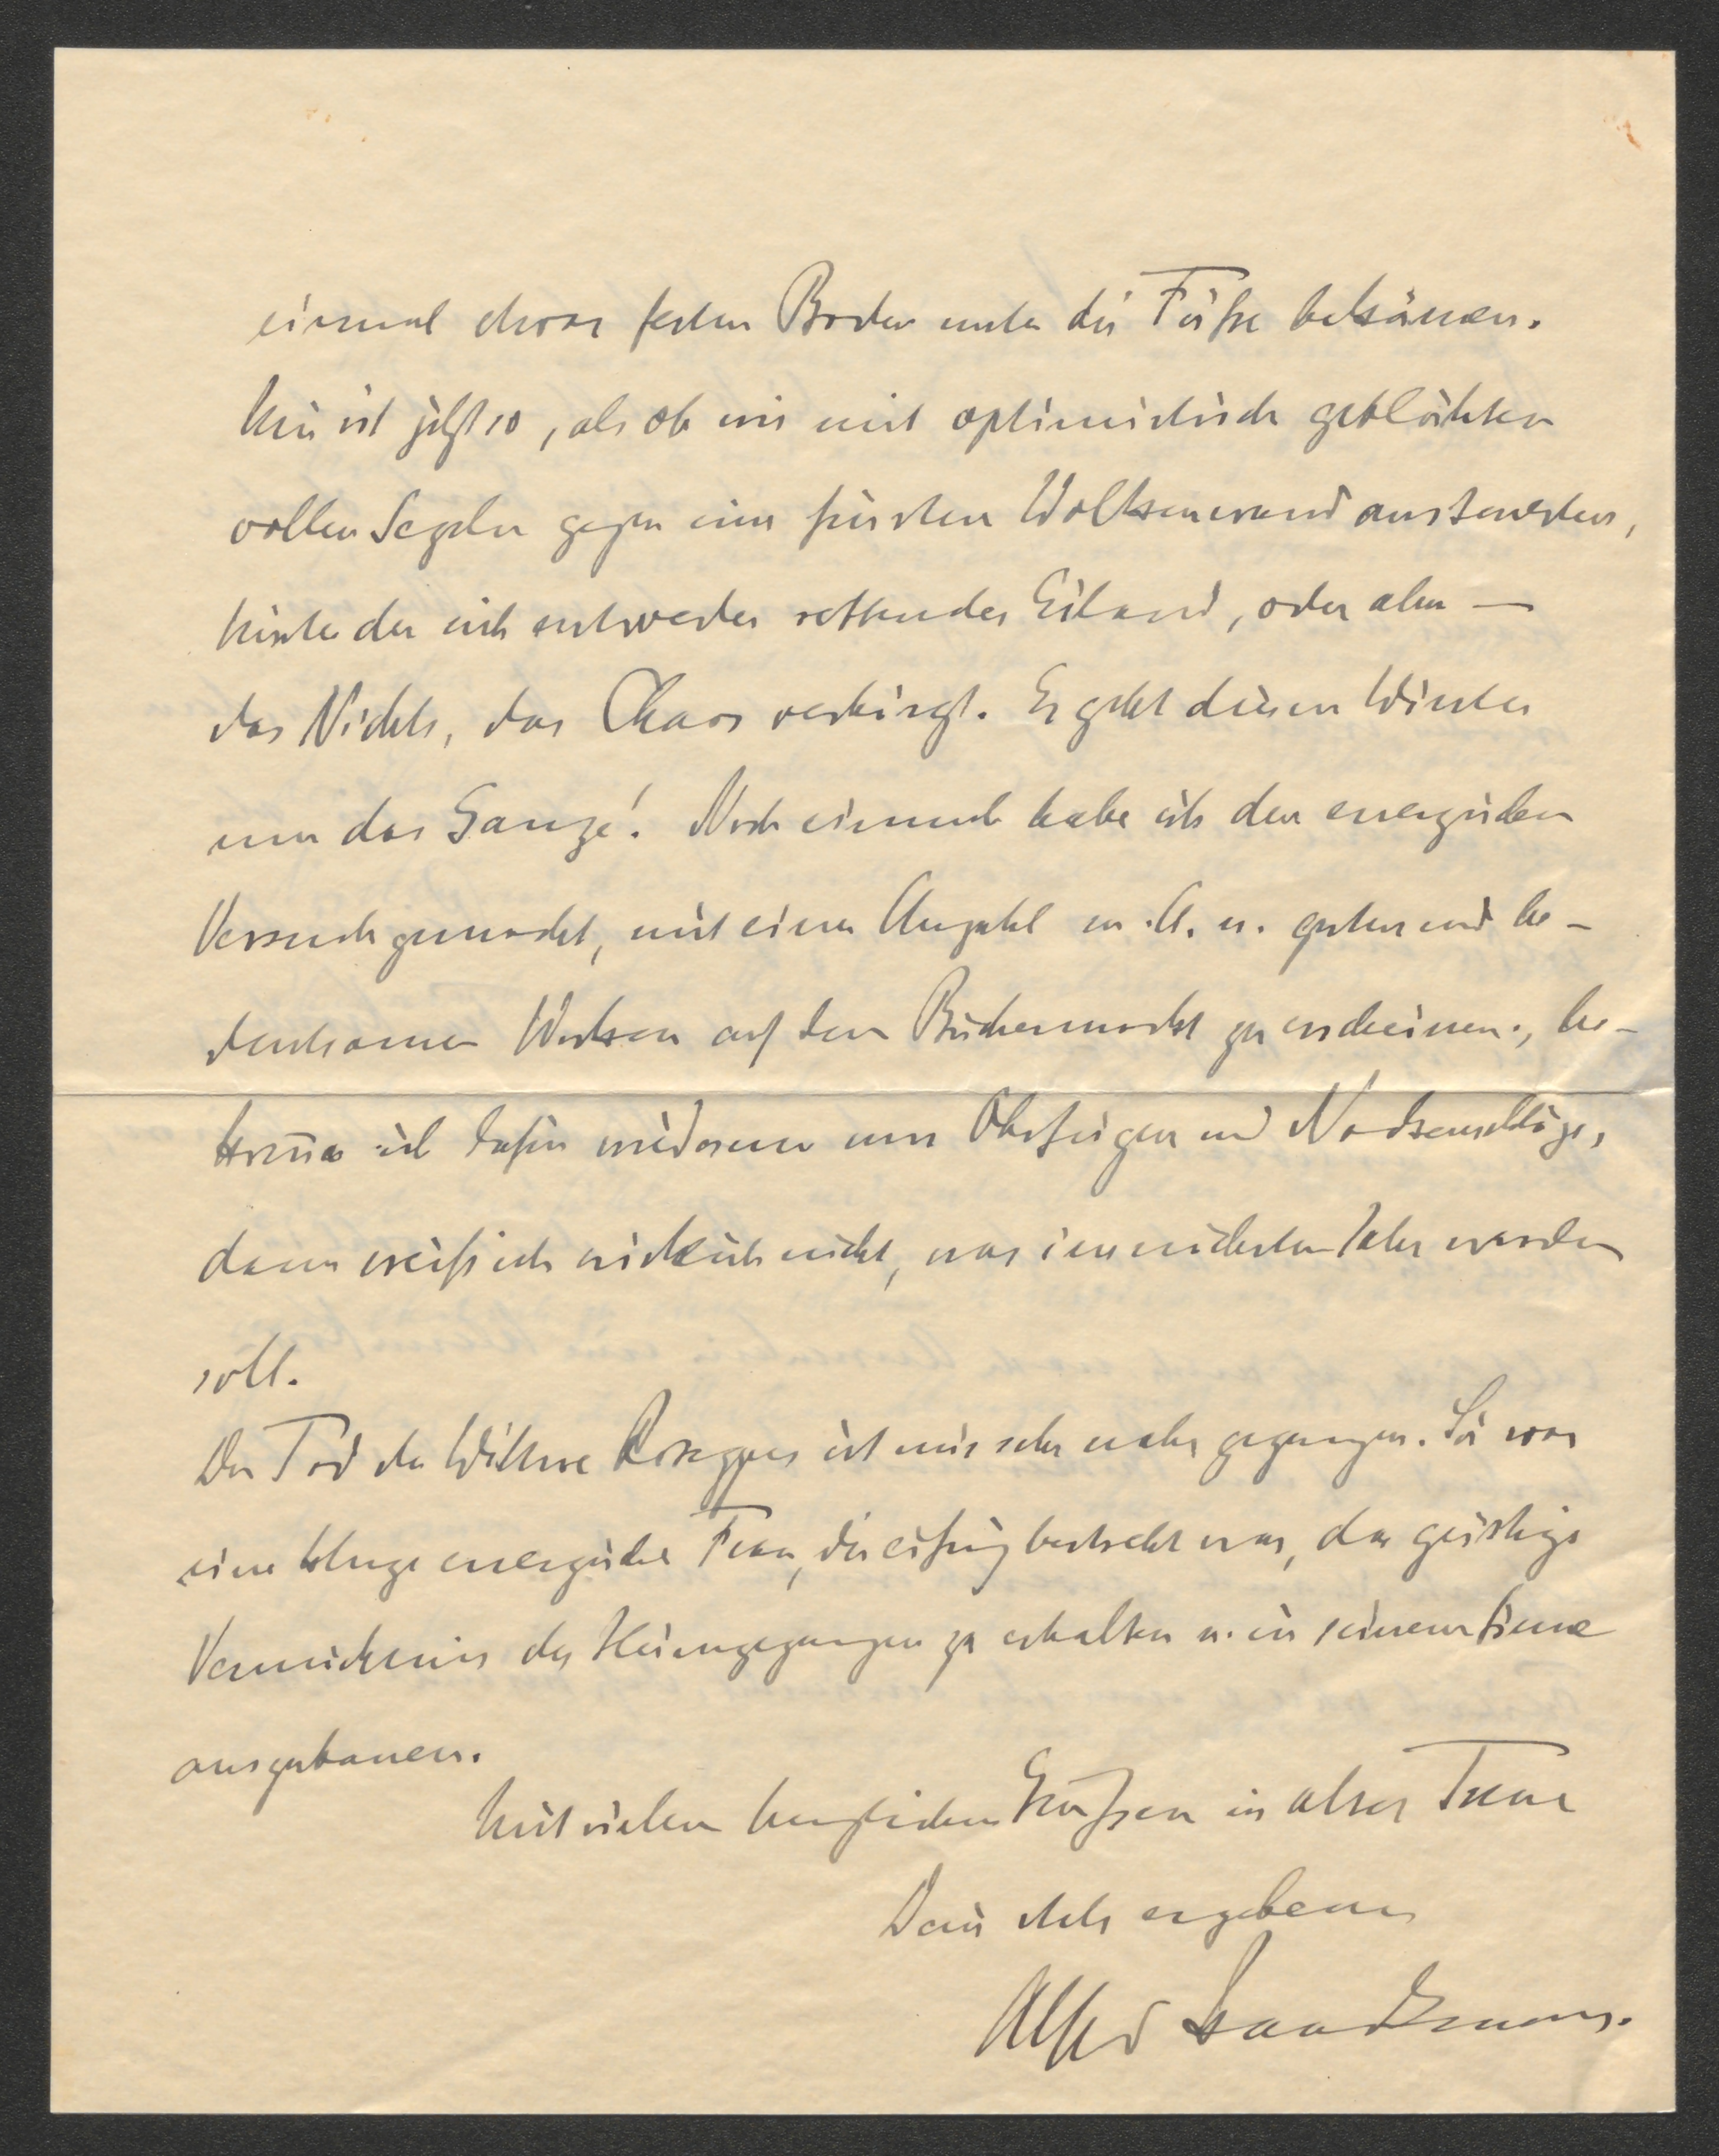 einmal etwas festen Boden unter die Füße bekämen.
Mir ist jetzt so, als ob wir mit optimistisch geblähten
vollen Segeln gegen eine finstere Wolkenwand ansteuerten,
hinter der sich entweder rettendes Eiland, oder aber —
das Nichts, das Chaos verbirgt. Es geht diesen Winter
um das Ganze! Noch einmal habe ich den energischen
Versuch gemacht, mit einer Anzahl m. A. n. guten und be-
deutsamen Werken auf dem Büchermarkt zu erscheinen, be-
komme ich dafür wiederum nur Ohrfeigen und Nackenschläge,
dann weiß ich wirklich nicht, was im nächsten Jahr werden
soll.
Der Tod der Wittwe Roseggers ist mir sehr nahe gegangen. Sie war
eine kluge energische Frau, die eifrig bestrebt war, das geistige
Vermächtnis des Heimgegangen zu erhalten u. in seinem Sinne
auszubauen.
Mit vielen herzlichen Grüßen in alter Treue
Dein stets ergebener
Alfred Staackmann.